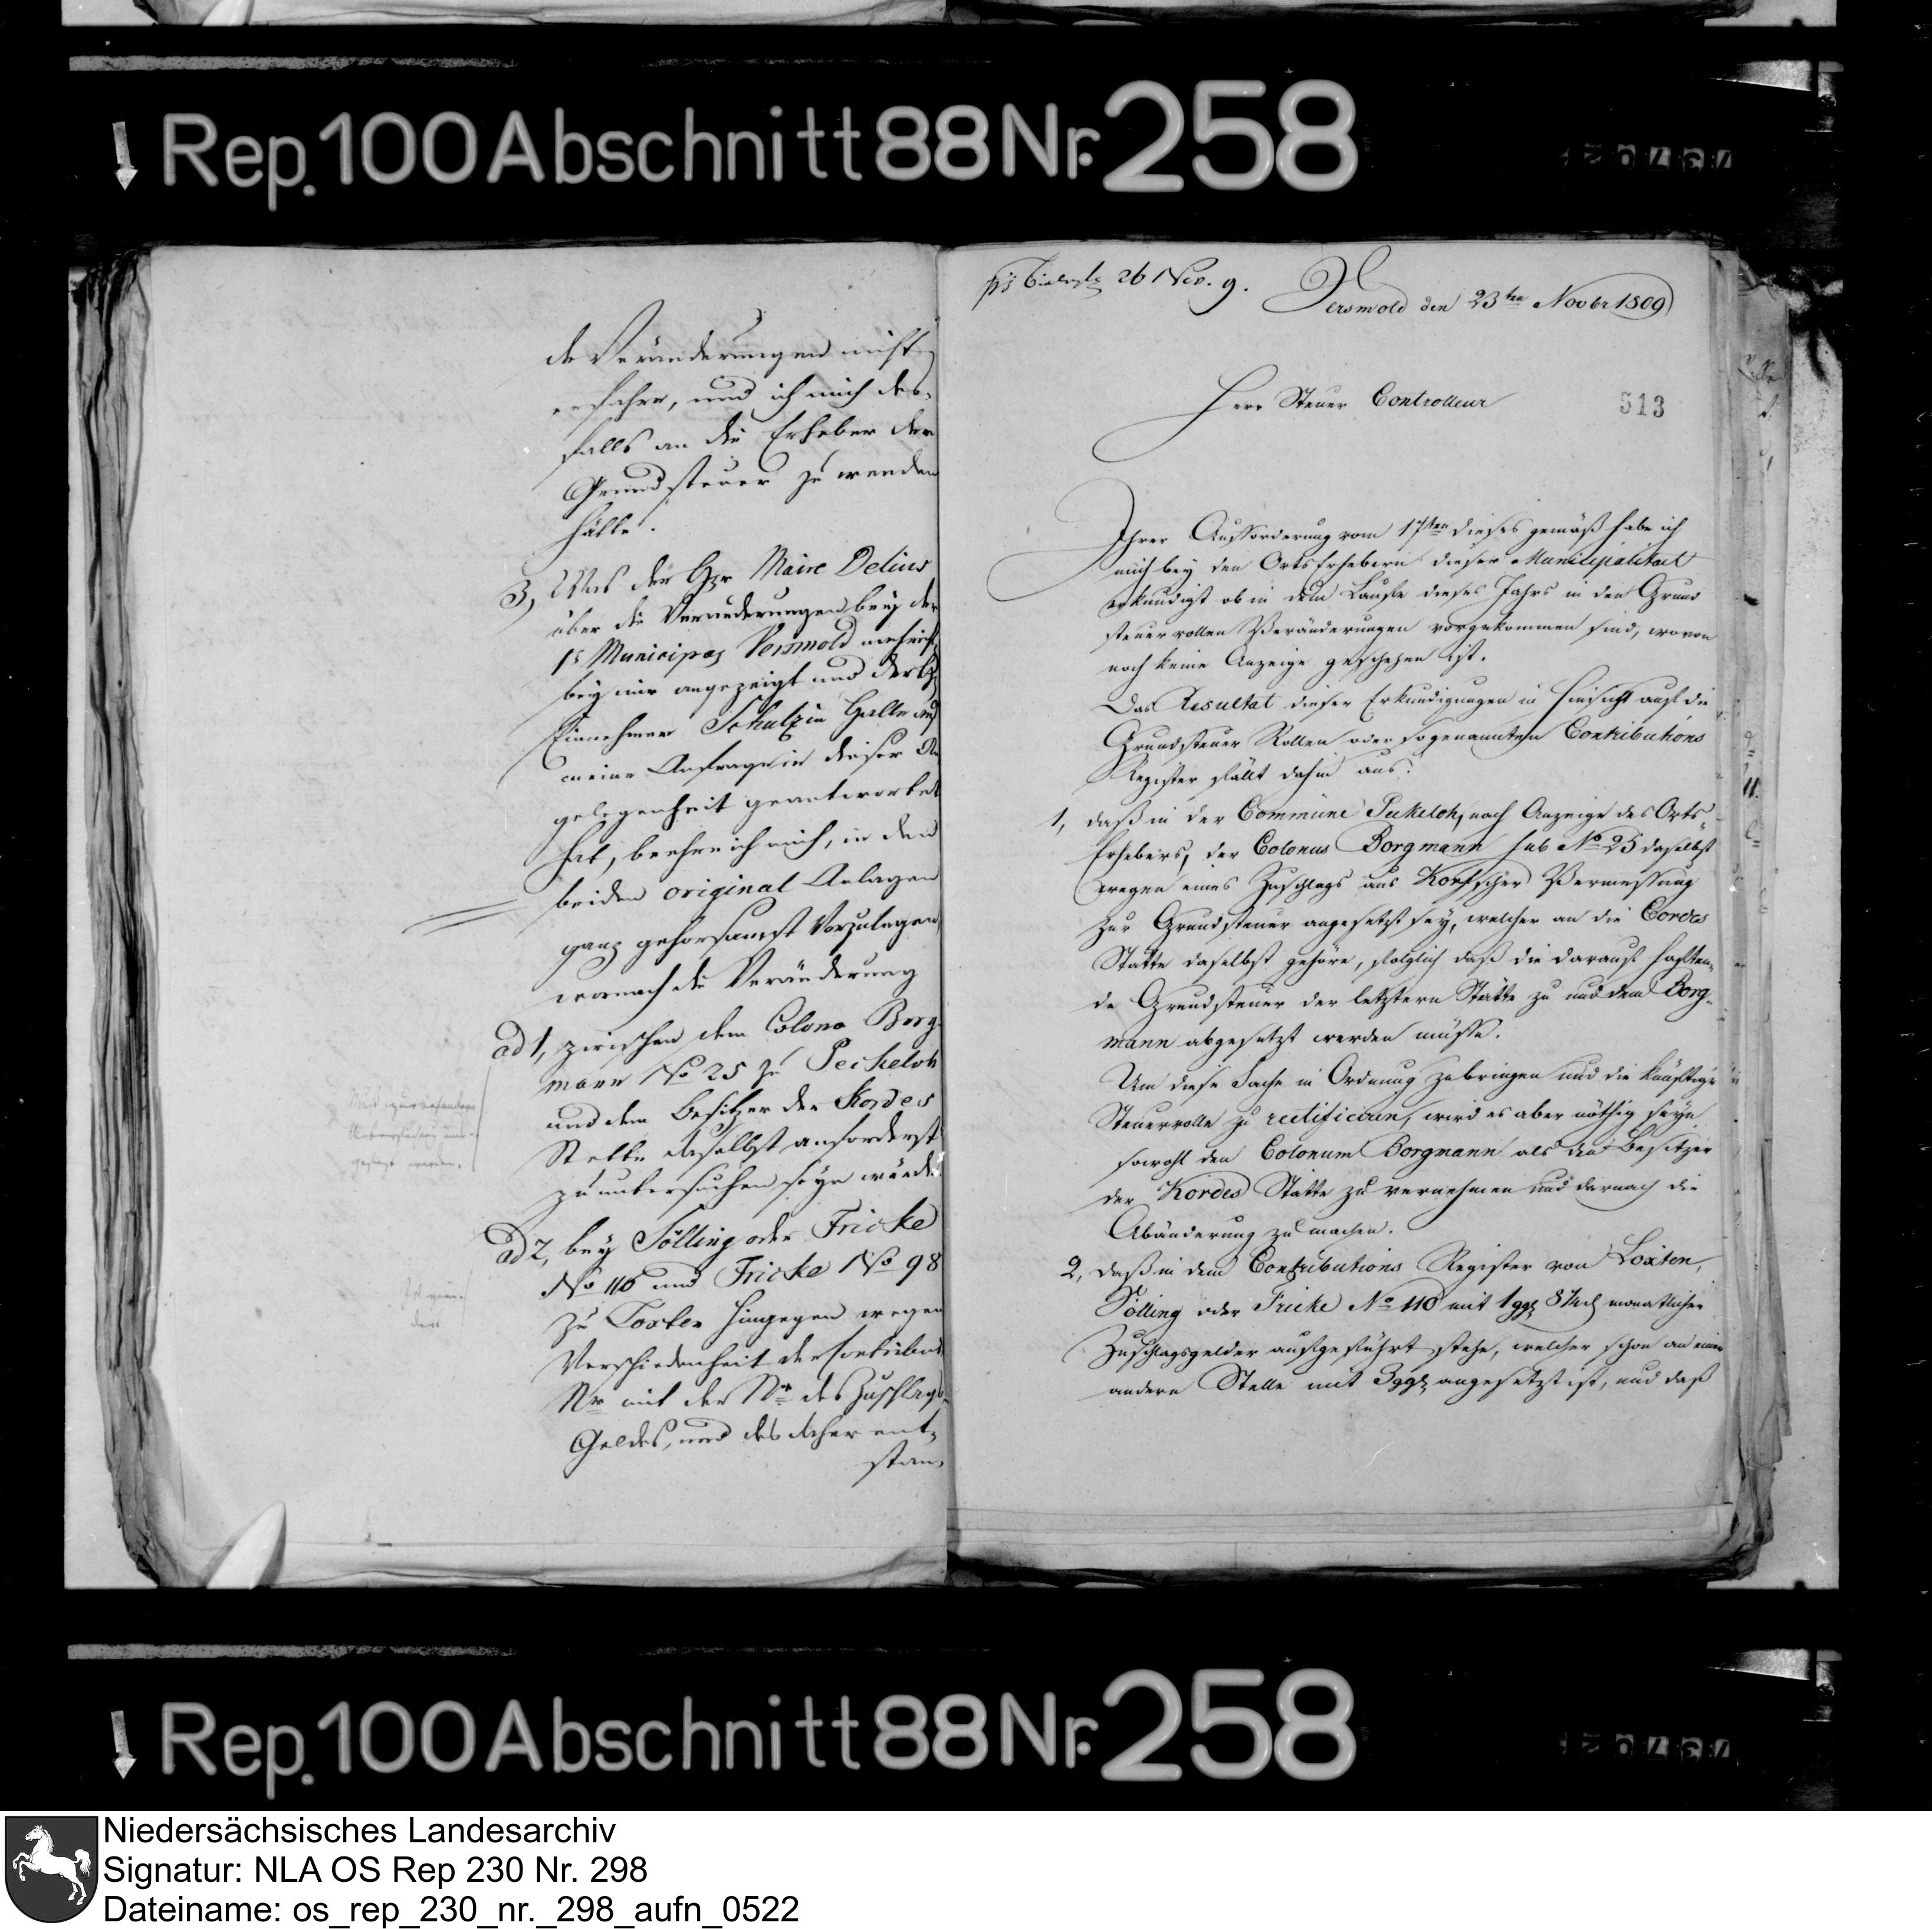 Rep. 100 Abschnitt 88 Nr. 258
de Veränderungen nicht
erfahre, und ich mich des,
falls an die Erheber der
Grundsteuer zu wenden
hätte.
3, Was der Hr Maire Delius
über die Veränderungen bey der
Municipat Versmold
bey mir angezeigt und der
Einnehmer Schulz in Halle auf
meine Anfrage in dieser An
gelegenheit geantwortet
hat, beehre ich mich, in den
beiden original Anlagen
ganz gehorsamst vorzulegen
wornach die Veränderung
ad 1, zwischen dem Colono Borg
mann No 25 zu Peckeloh
und dem Besitzer der Kordes
Stette daselbst anforderst
zu untersuchen seyn würde.
ad 2, bey Sölling oder Fricke
No 116 und Fricke No 98
zu Loxten hingegen wegen
Verschiedenheit der Contribut
Nr mit der Nr des Zuschlags
Geldes, und des daher ent,
stan,
26 Nov. 9.
Versmold den 23ten Novbr 1809
Herr Steuer Controlleur
513
Ihrer Aufforderung vom 17ten dieses gemäß habe ich
mich bey den Orts Erhebern dieser Municipalitaet
erkundigt ob in dem Laufe dieses Jahrs in den Grund
steuerrollen Veränderungen vorgekommen sind, wovon
noch keine Anzeige geschehen ist.
Das Resultat dieser Erkundigungen in Hinsicht auf die
Grundsteuer Rollen oder sogenannten Contributions
Register fällt dahin aus:
1, daß in der Commüne Peckeloh, nach Anzeige des Orts,
Erhebers, der Colonus Borgmann sub No 25 daselbst
wegen eines Zuschlags aus Korfscher Vermessung
zur Grundsteuer angesetzt sey, welcher an die Cordes
Stätte daselbst gehöre, folglich daß die darauf haften,
de Grundsteuer der letztern Stätte zu und dem Borg,
mann abgesetzt werden müsse.
Um diese Sache in Ordnung zu bringen und die künftige
Steuerrolle zu rectificiren, wird es aber nöthig seyn
sowohl den Colonum Borgmann als den Besitzer
der Kordes Stätte zu vernehmen und darnach die
Abänderung zu machen.
2, daß in dem Contributions Register von Loxten,
Sölling oder Fricke No 110 mit 1 ggr monatlicher
Zuschlagsgelder aufgeführt stehe, welcher schon an einer
andern Stelle mit 3 ggr angesetzt ist, und daß
Rep. 100 Abschnitt 88 Nr. 258
Niedersächsisches Landesarchiv
Signatur: NLA OS Rep 230 Nr. 298
Dateiname: os_rep_230_nr._298_aufn_0522